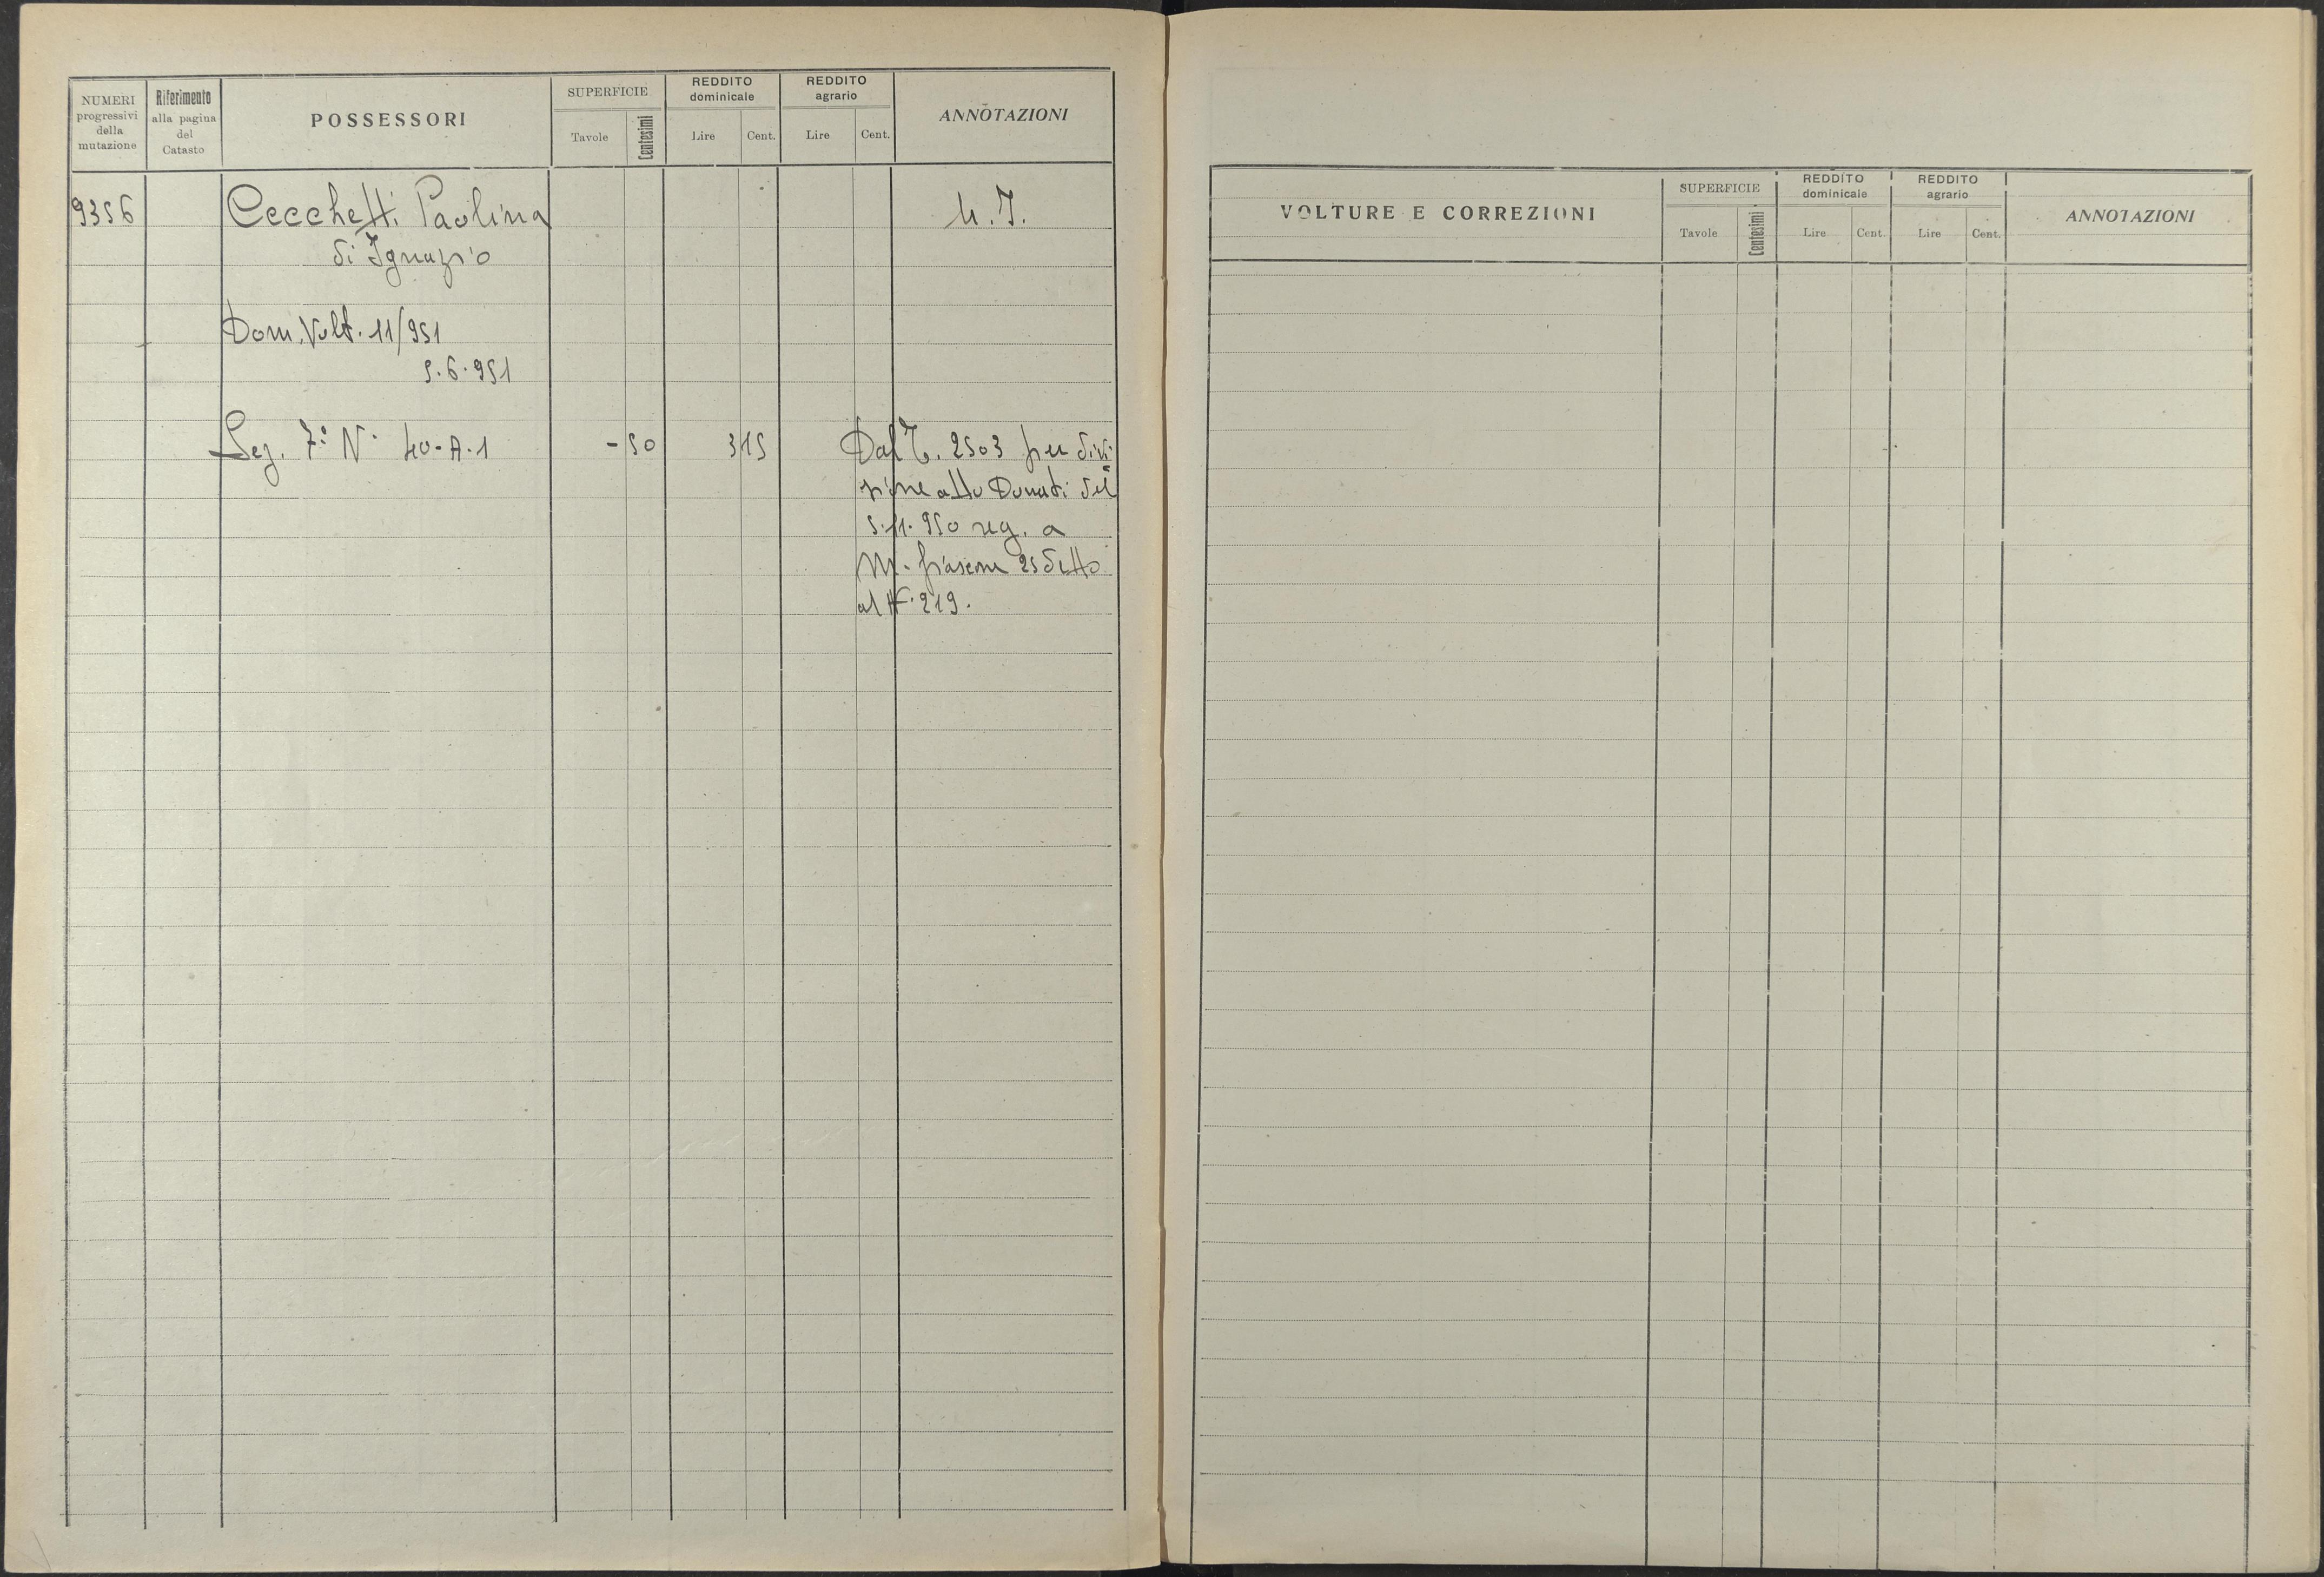 NUMERI
progressivi
della
mutazione
Riferimento
alla pagina
del
Catasto
POSSESSORI
SUPERFICIE
Tavole
Centesimi
REDDITO
dominicale
Lire
Cent.
REDDITO
agrario
Lire
Cent.
ANNOTAZIONI
9356
Cecchetti Paolina
di Ignazio
M.F.
Dom. Volt. 11/951
5.6.951
Sez. 7ª N° 40-A-1 -50 3 15 Dal T. 2503 per divi
sione atto Donati del
5.11.950 reg. a
M. fiascone 25 detto
al N° 219.
VOLTURE E CORREZIONI
SUPERFICIE
Tavole
Centesimi
REDDITO
dominicale
Lire
Cent.
REDDITO
agrario
Lire
Cent.
ANNOTAZIONI